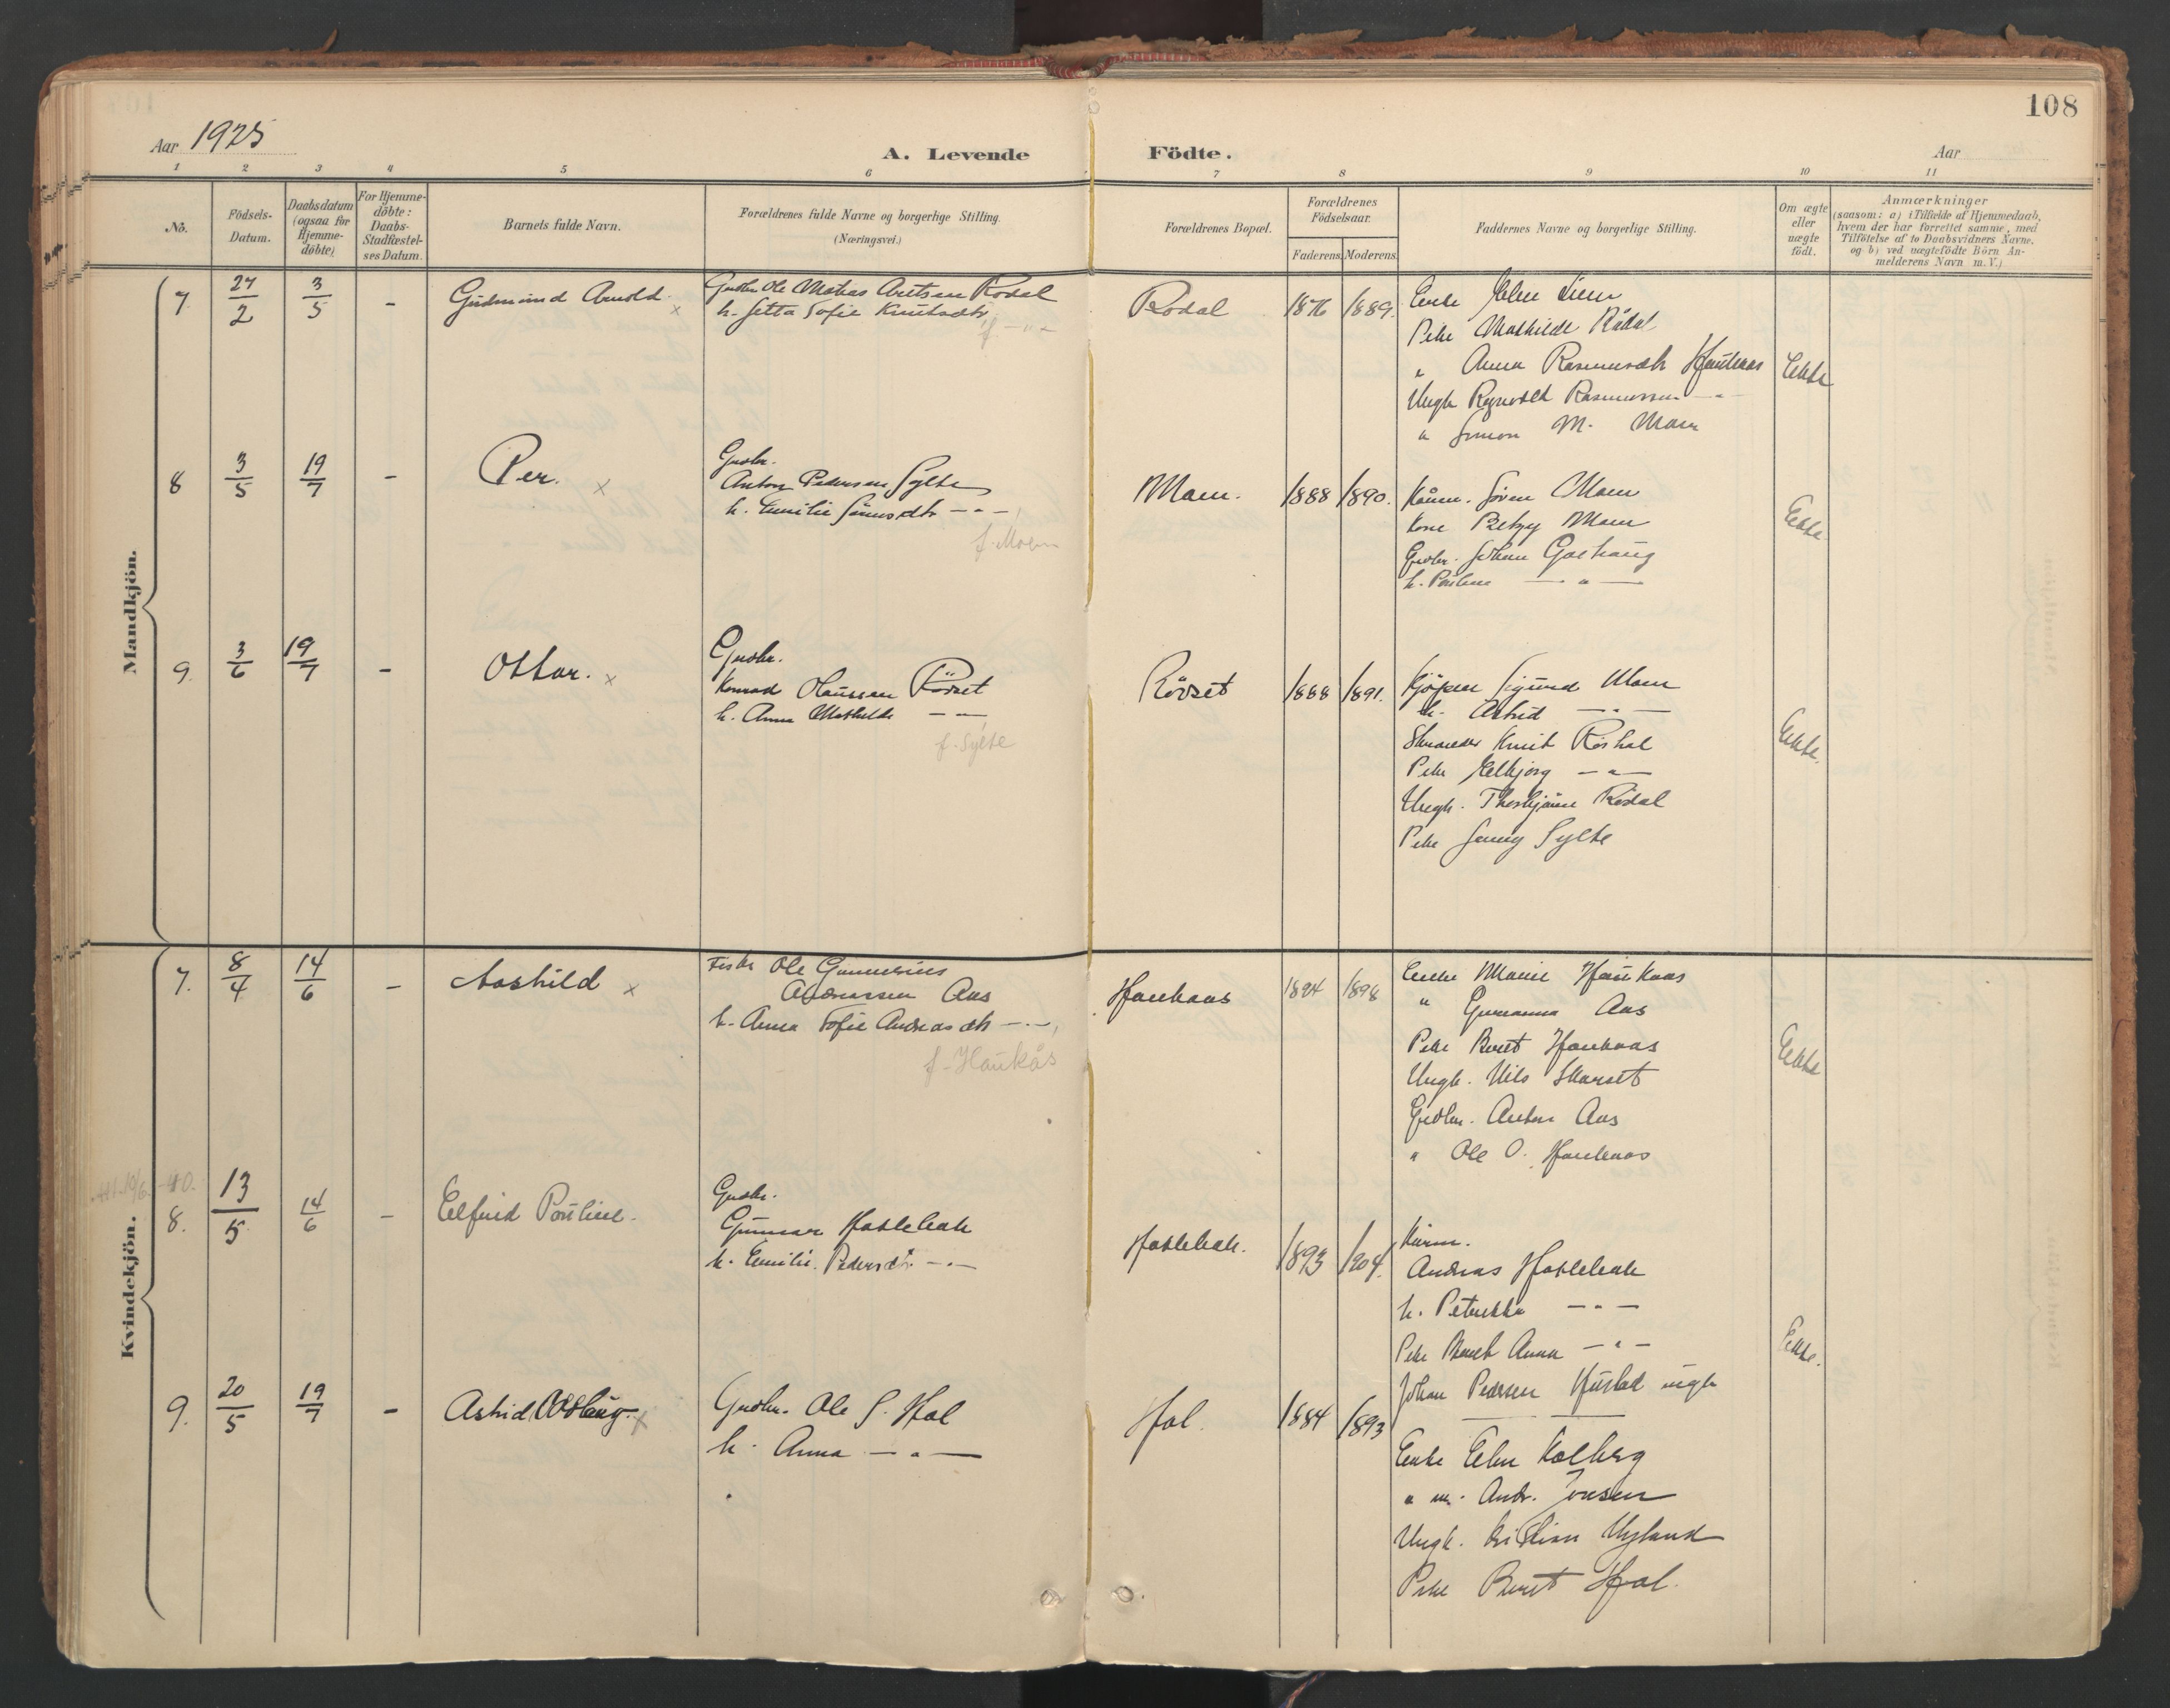 108
Aar 1925
A. Levende Födte.
Aar
1 2 3 4 5 6 7 8 9 10 11
No.
Födsels-
Datum.
Daabsdatum
(ogsaa for
Hjemme-
döbte)
For Hjemme-
döbte:
Daabs-
Stadfæstel-
ses Datum.
Barnets fulde Navn.
Forældrenes fulde Navne og borgerlige Stilling.
(Næringsvei.)
Forældrenes Bopæl.
Forældrenes
Födselsaar.
Faderens. Moderens.
Faddernes Navne og borgerlige Stilling.
Om ægte
eller
uægte
födt.
Anmærkninger
(saasom: a) i Tilfælde af Hjemmedaab,
hvem der har forrettet samme, med
Tilföielse af to Daabsvidners Navne.
og b) ved uægtefödte Börn An-
melderens Navn m. V.)
Mandkjön.
7. 27/2 3/5 - Gudmund Arnold. x
Grdbr. Ole Matias Aretsen Rödal
h. Jetta Sofie Knutsdtr
f - " -
Rödal 1876 1889.
Enke Elen Lien
Pike Mathilde Rådal
" Anna Rasmusdtr Haukaas
Ungk Reynold Rasmussen - " -
" Simon M. Maen
Ekte
8 3/5 19/7 - Per. x
Grdbr.
Anton Pedersen Sylte
h. Emilie Sörensdtr - " -
f. Moen
Maen. 1888 1890.
Kårm. Sören Maen
Kone Betzy Maen
Grdbr. Johan Gashaug
h. Pauline - " -
Ekte
9. 3/6 19/7 - Ottar. x
Grdbr.
Konrad Hanssen Rödset
h. Anna Mathilde - " -
f. Sylte
Rövset 1888 1891.
Kjöpm Sigurd Maen
h. Astrid - " -
Skreder Knut Röshol
Pike Eelbjorg - " -
Ungk. Thorbjörn Rödal
Pike Jenny Sylte
Ekte.
Kvindekjön.
7. 8/4 14/6 - Aashild x
Fisker Ole Gunnerius
Andreassen Aas
h. Anna Sofie Andreasdtr - " -
f. Haukås
Haukaas 1894 1898
Enke Marie Haukaas
" Gurianna Aas
Pike Beret Haukaas
Ungk. Nils Skarset
Grdbr. Anton Aas
" Ole O. Haukaas
Ekte
8. 13/5 14/6 - Elfrid Pauline.
Grdbr.
Gunnar Hatlebak
h. Emilie Pedersdtr. - " -
Hatlebak. 1893 1904.
Kårm.
Andreas Hatlebak
h. Petrikka - " -
Pike Beret Anna - " -
Johan Pedersen Hustad ungk
Ekte.
9. 20/5 19/7 - Astrid Oddlaug. x
Grdbr. Ole S. Hol
h. Anna - " -
Hol. 1884 1893
Enke Elen Kolberg
" m. Andr. Jonsen
Ungk. Kristian Nyland
Pike Beret Hol.